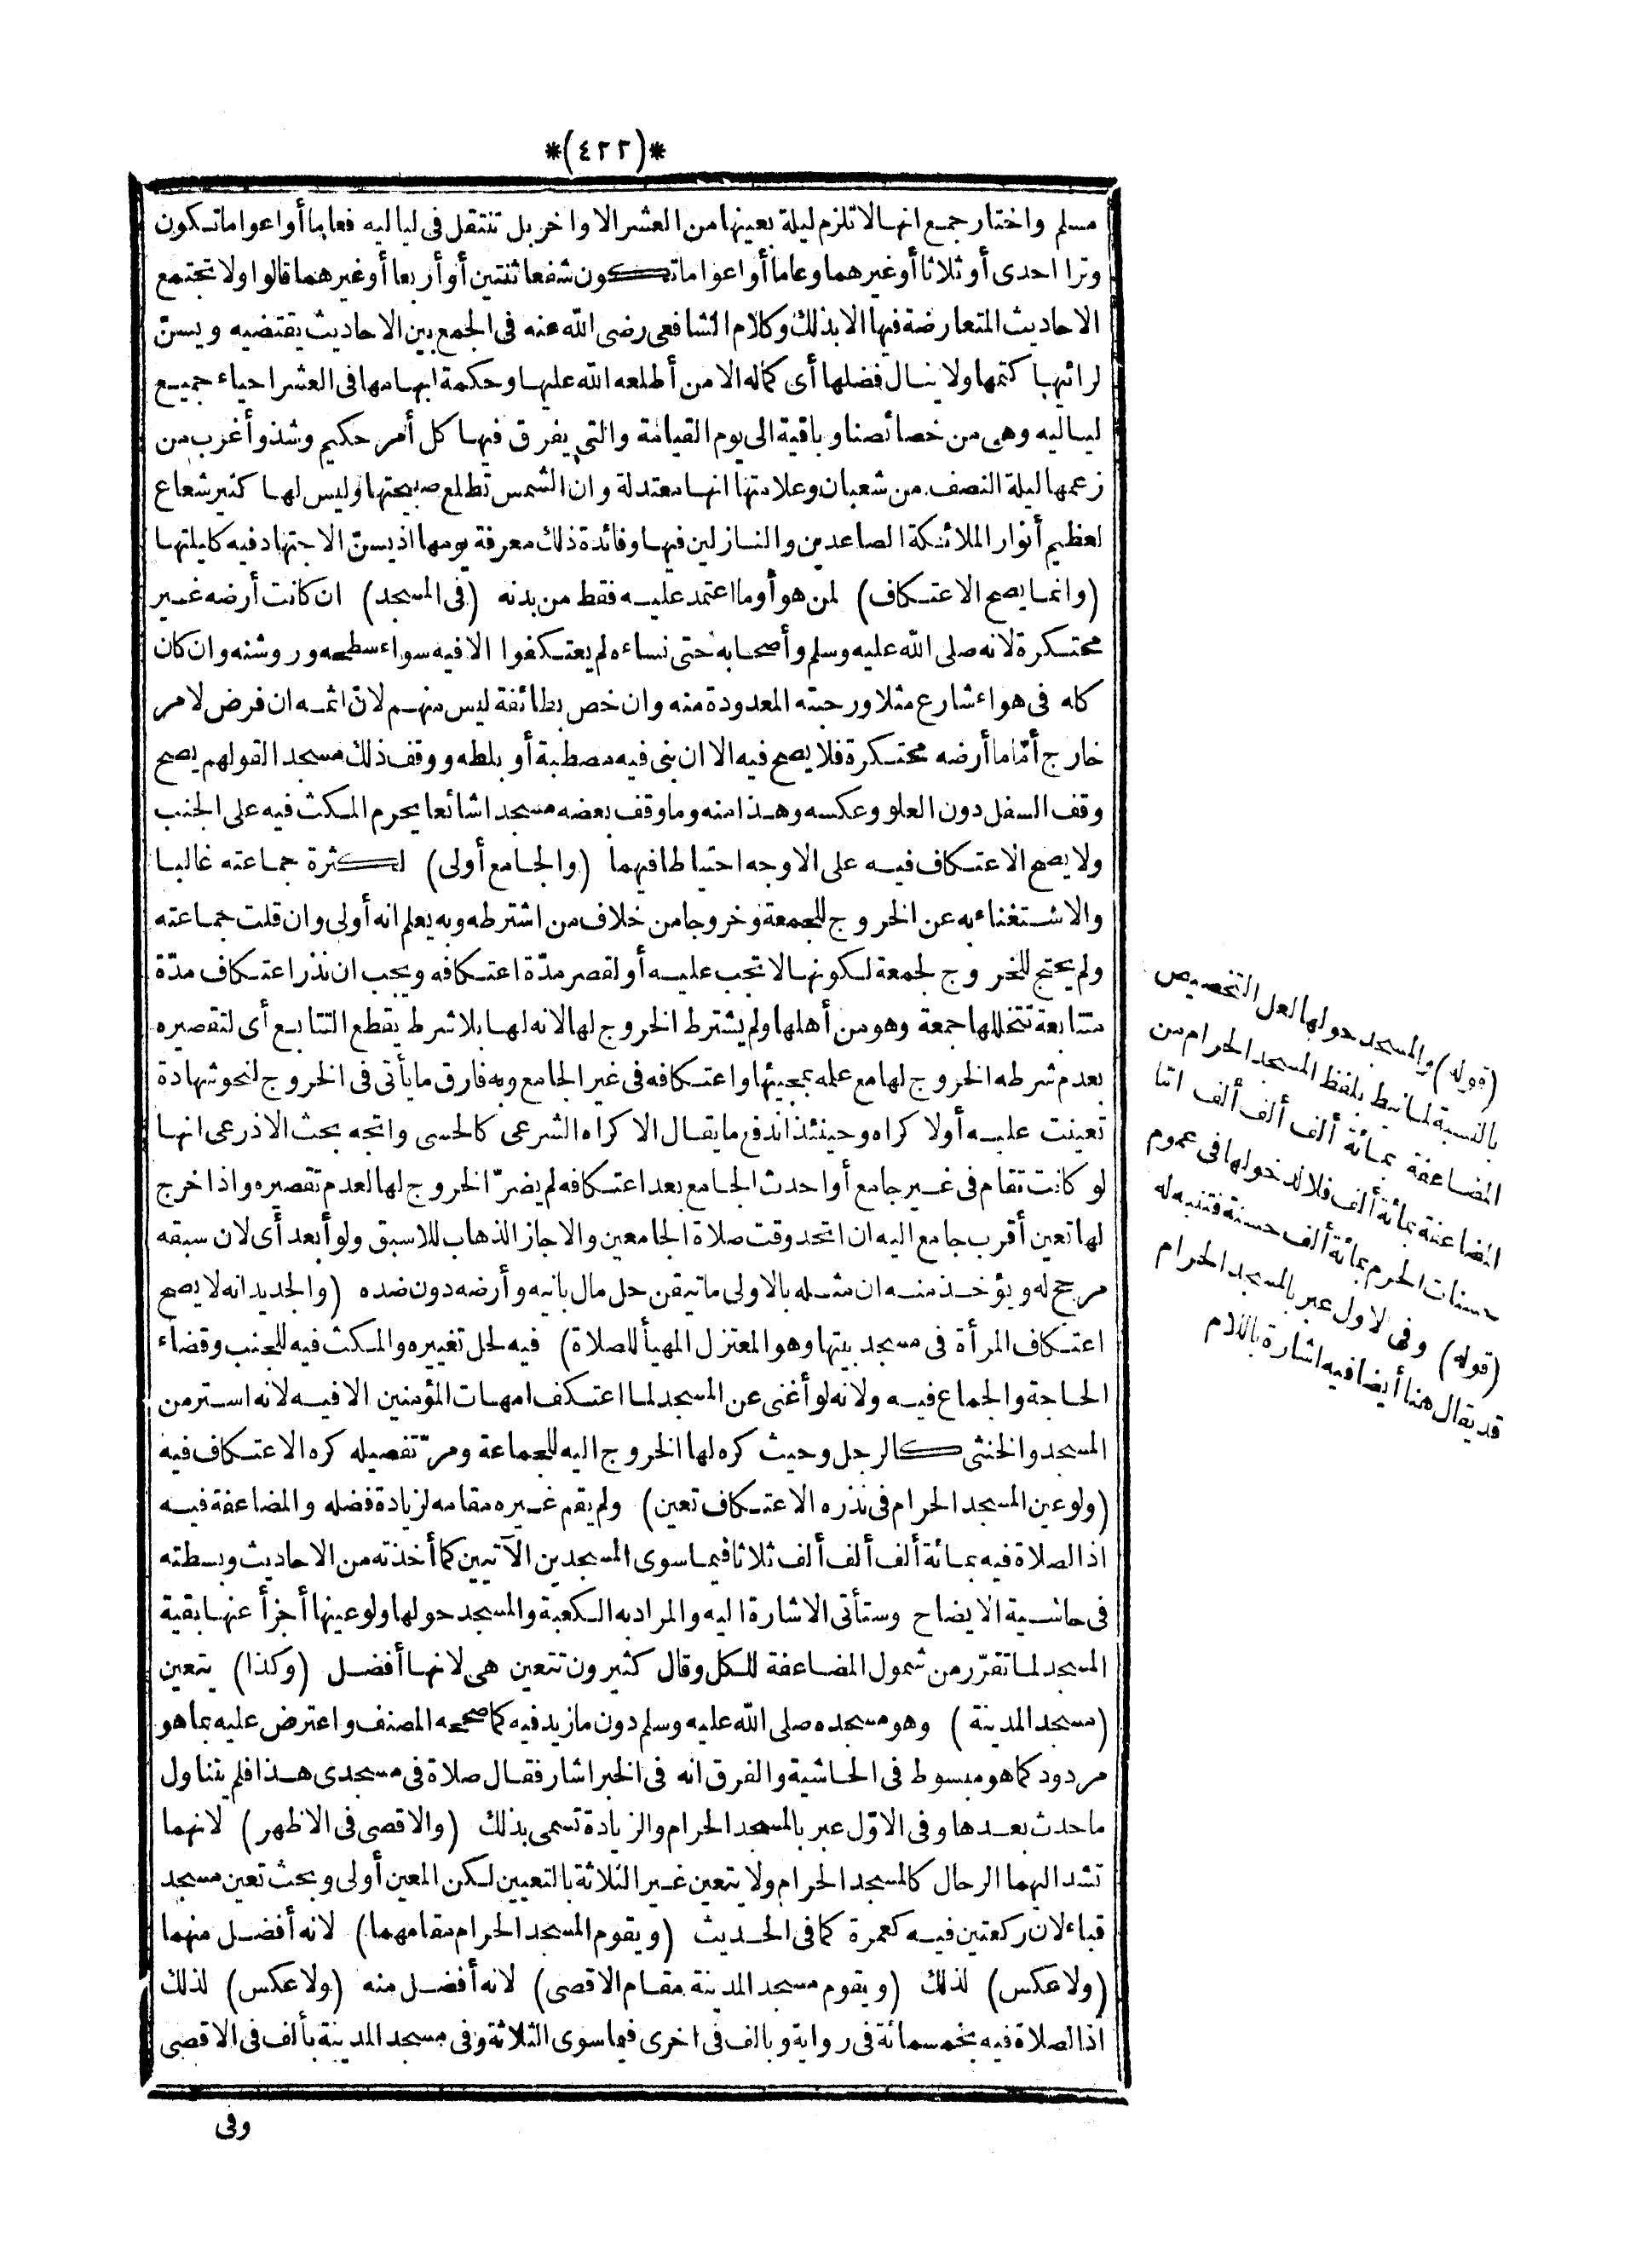 *(٤٢٢)*
مسلم واختار جمع انها لا تلزم ليلة بعينها من العشر الاواخر بل تنتقل فى لياليه فعاما أو أعواما تكون
وترا احدى أو ثلاثا أو غيرهما وعاما أو أعواما تكون شفعا ثنتين أو أربعا أو غيرهما قالوا ولا تجتمع
الاحاديث المتعارضة فيها الا بذلك وكلام الشافعى رضى الله عنه فى الجمع بين الاحاديث يقتضيه ويسنّ
لرائيها كتمها ولا ينال فضلها أى كماله الا من أطلعه الله عليها وحكمة ابهامها فى العشر احياء جميع
لياليه وهى من خصائصنا وباقية الى يوم القيامة والتى يفرق فيها كل أمر حكيم وشذ وأغرب من
زعمها ليلة النصف من شعبان وعلامتها انها معتدلة وان الشمس تطلع صبيحتها وليس لها كثير شعاع
لعظيم أنوار الملائكة الصاعدين والنازلين فيها وفائدة ذلك معرفة يومها اذ يسنّ الاجتهاد فيه كليلتها
(وانما يصح الاعتكاف) لمن هو أو ما اعتمد عليه فقط من بدنه (فى المسجد) ان كانت أرضه غير
محتكرة لانه صلى الله عليه وسلم وأصحابه حتى نساءه لم يعتكفوا الا فيه سواء سطحه وروشنه وان كان
كله فى هواء شارع مثلا ورحبته المعدودة منه وان خص بطائفة ليس منهم لانّ اثمه ان فرض لامر
خارج أمّا ما أرضه محتكرة فلا يصح فيه الا ان بنى فيه مصطبة أو بلطه ووقف ذلك مسجدا لقولهم يصح
وقف السفل دون العلو وعكسه وهذا منه وما وقف بعضه مسجدا شائعا يحرم المكث فيه على الجنب
ولا يصح الاعتكاف فيه على الاوجه احتياطا فيهما (والجامع أولى) لكثرة جماعته غالبا
والاستغناء به عن الخروج للجمعة وخروجا من خلاف من اشترطه وبه يعلم انه أولى وان قلت جماعته
ولم يحتج للخروج لجمعة لكونها لا تجب عليه أو لقصر مدّة اعتكافه ويجب ان نذر اعتكاف مدّة
متتابعة تتخللها جمعة وهو من أهلها ولم يشترط الخروج لها لانه لها بلا شرط يقطع التتابع أى لتقصيره
بعدم شرطه الخروج لها مع علمه بمجيئها واعتكافه فى غير الجامع وبه فارق ما يأتى فى الخروج لنحو شهادة
تعينت عليه أو لاكراه وحينئذ اندفع ما يقال الاكراه الشرعى كالحسى واتجه بحث الاذرعى انها
لو كانت تقام فى غير جامع أو احدث الجامع بعد اعتكافه لم يضرّ الخروج لها لعدم تقصيره واذا خرج
لها تعين أقرب جامع اليه ان اتحد وقت صلاة الجامعين والا جاز الذهاب للاسبق ولو أبعد أى لان سبقه
مرجح له ويؤخذ منه ان مثله بالاولى ما تيقن حل مال بانيه وأرضه دون ضده (والجديد انه لا يصح
اعتكاف المرأة فى مسجد بيتها وهو المعتزل المهيأ للصلاة) فيه لحل تغييره والمكث فيه للجنب وقضاء
الحاجة والجماع فيه ولانه لو أغنى عن المسجد لما اعتكف امهات المؤمنين الا فيه لانه استر من
المسجد والخنثى كالرجل وحيث كره لها الخروج اليه للجماعة ومرّ تفصيله كره الاعتكاف فيه
(ولو عين المسجد الحرام فى نذره الاعتكاف تعين) ولم يقم غيره مقامه لزيادة فضله والمضاعفة فيه
اذ الصلاة فيه بمائة ألف ألف ألف ثلاثا فيما سوى المسجدين الآتيين كما أخذته من الاحاديث وبسطته
فى حاشية الايضاح وستأتى الاشارة اليه والمراد به الكعبة والمسجد حولها ولو عينها أجزأ عنها بقية
المسجد لما تقرّر من شمول المضاعفة للكل وقال كثيرون تتعين هى لانها أفضل (وكذا) يتعين
(مسجد المدينة) وهو مسجده صلى الله عليه وسلم دون ما زيد فيه كما صححه المصنف واعترض عليه بما هو
مردود كما هو مبسوط فى الحاشية والفرق انه فى الخبر اشار فقال صلاة فى مسجدى هذا فلم يتناول
ما حدث بعدها وفى الاوّل عبر بالمسجد الحرام والزيادة تسمى بذلك (والاقصى فى الاظهر) لانهما
تشد اليهما الرحال كالمسجد الحرام ولا يتعين غير الثلاثة بالتعيين لكن المعين أولى وبحث تعين مسجد
قباء لان ركعتين فيه كعمرة كما فى الحديث (ويقوم المسجد الحرام مقامهما) لانه أفضل منهما
(ولا عكس) لذلك (ويقوم مسجد المدينة مقام الاقصى) لانه أفضل منه (ولا عكس) لذلك
اذ الصلاة فيه بخمسمائة فى رواية وبالف فى اخرى فيما سوى الثلاثة وفى مسجد المدينة بألف فى الاقصى
وفى
(قوله) والمسجد حولها لعل التخصيص
بالنسبة لما نيط بلفظ المسجد الحرام من
المضاعفة بمائة ألف ألف ألف امّا
المضاعفة بمائة ألف فلا لدخولها فى عموم
حسنات الحرم بمائة ألف حسنة فتنبه له
(قوله) وفى الاول عبر بالمسجد الحرام
قد يقال هنا أيضا فيه اشارة باللام